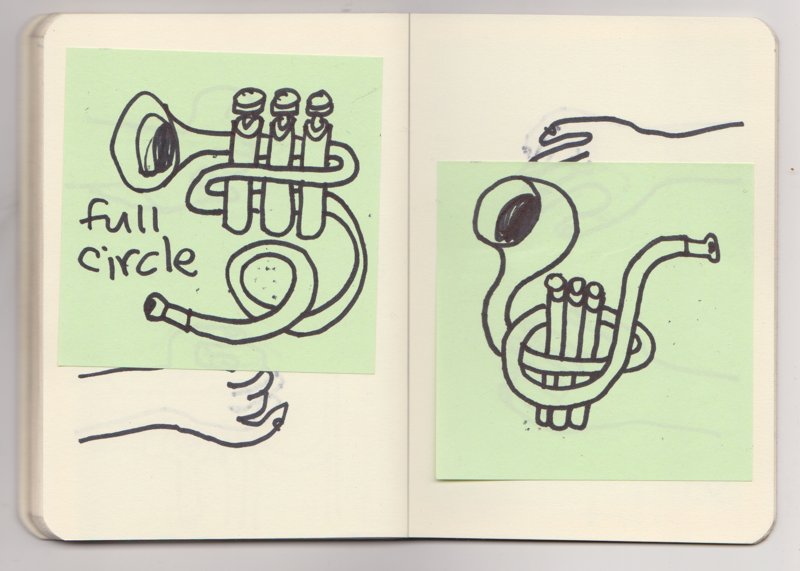 full
circle